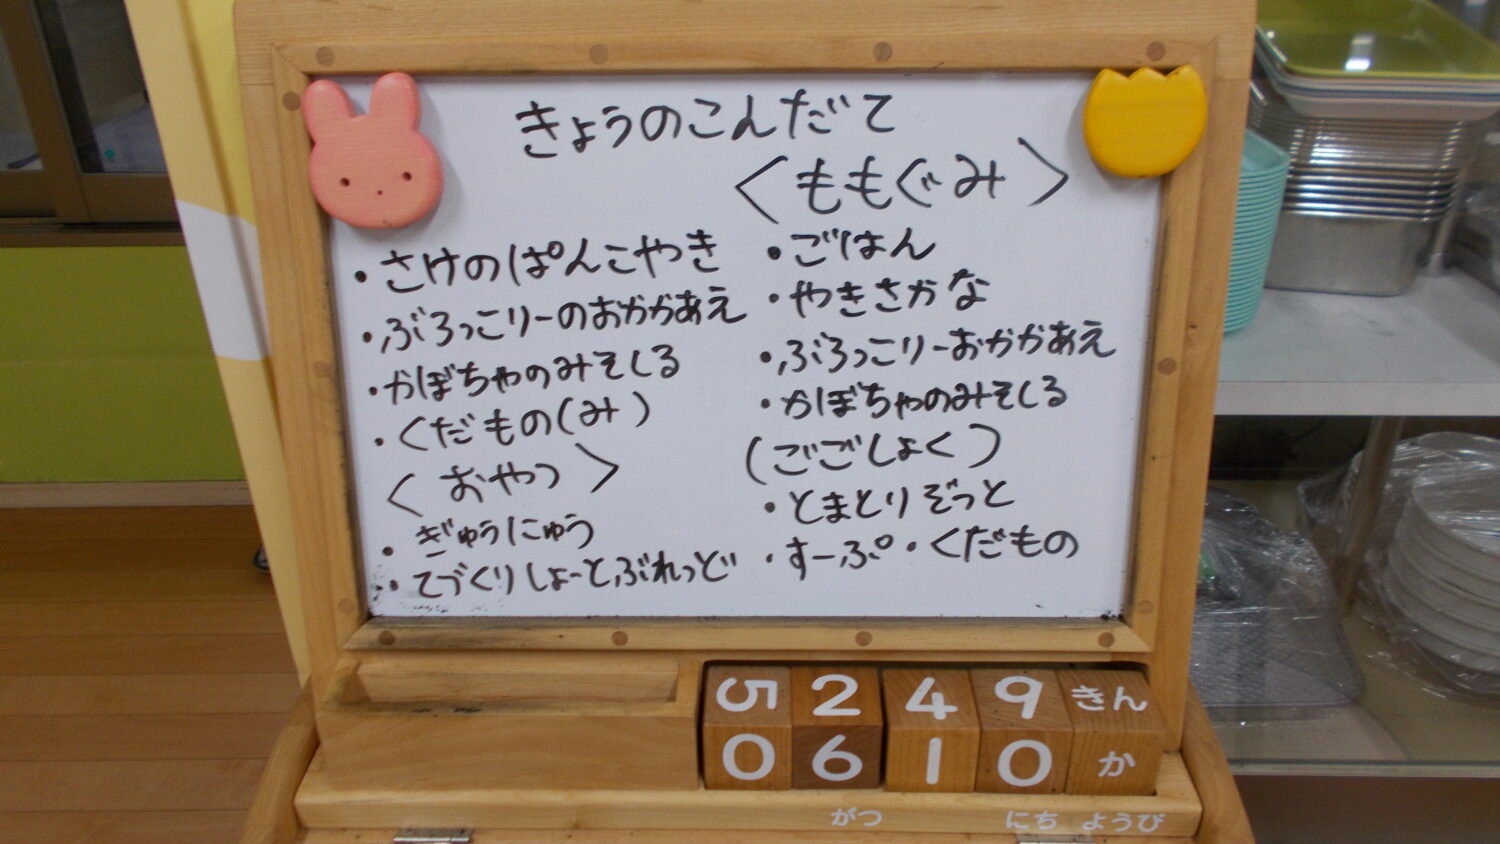 きょうのこんだて
・さけのぱんこやき
・ぶろっこりーのおかかあえ
・かぼちゃのみそしる
・くだもの(み)
〈おやつ〉
・ぎゅうにゅう
・てづくりしょーとぶれっど
〈ももぐみ〉
・ごはん
・やきさかな
・ぶろっこりーおかかあえ
・かぼちゃのみそしる
(ごごしょく)
・とまとりぞっと
・すーぷ・くだもの
5 2 4 9 きん
0 6 1 0 か
がつ にち ようび